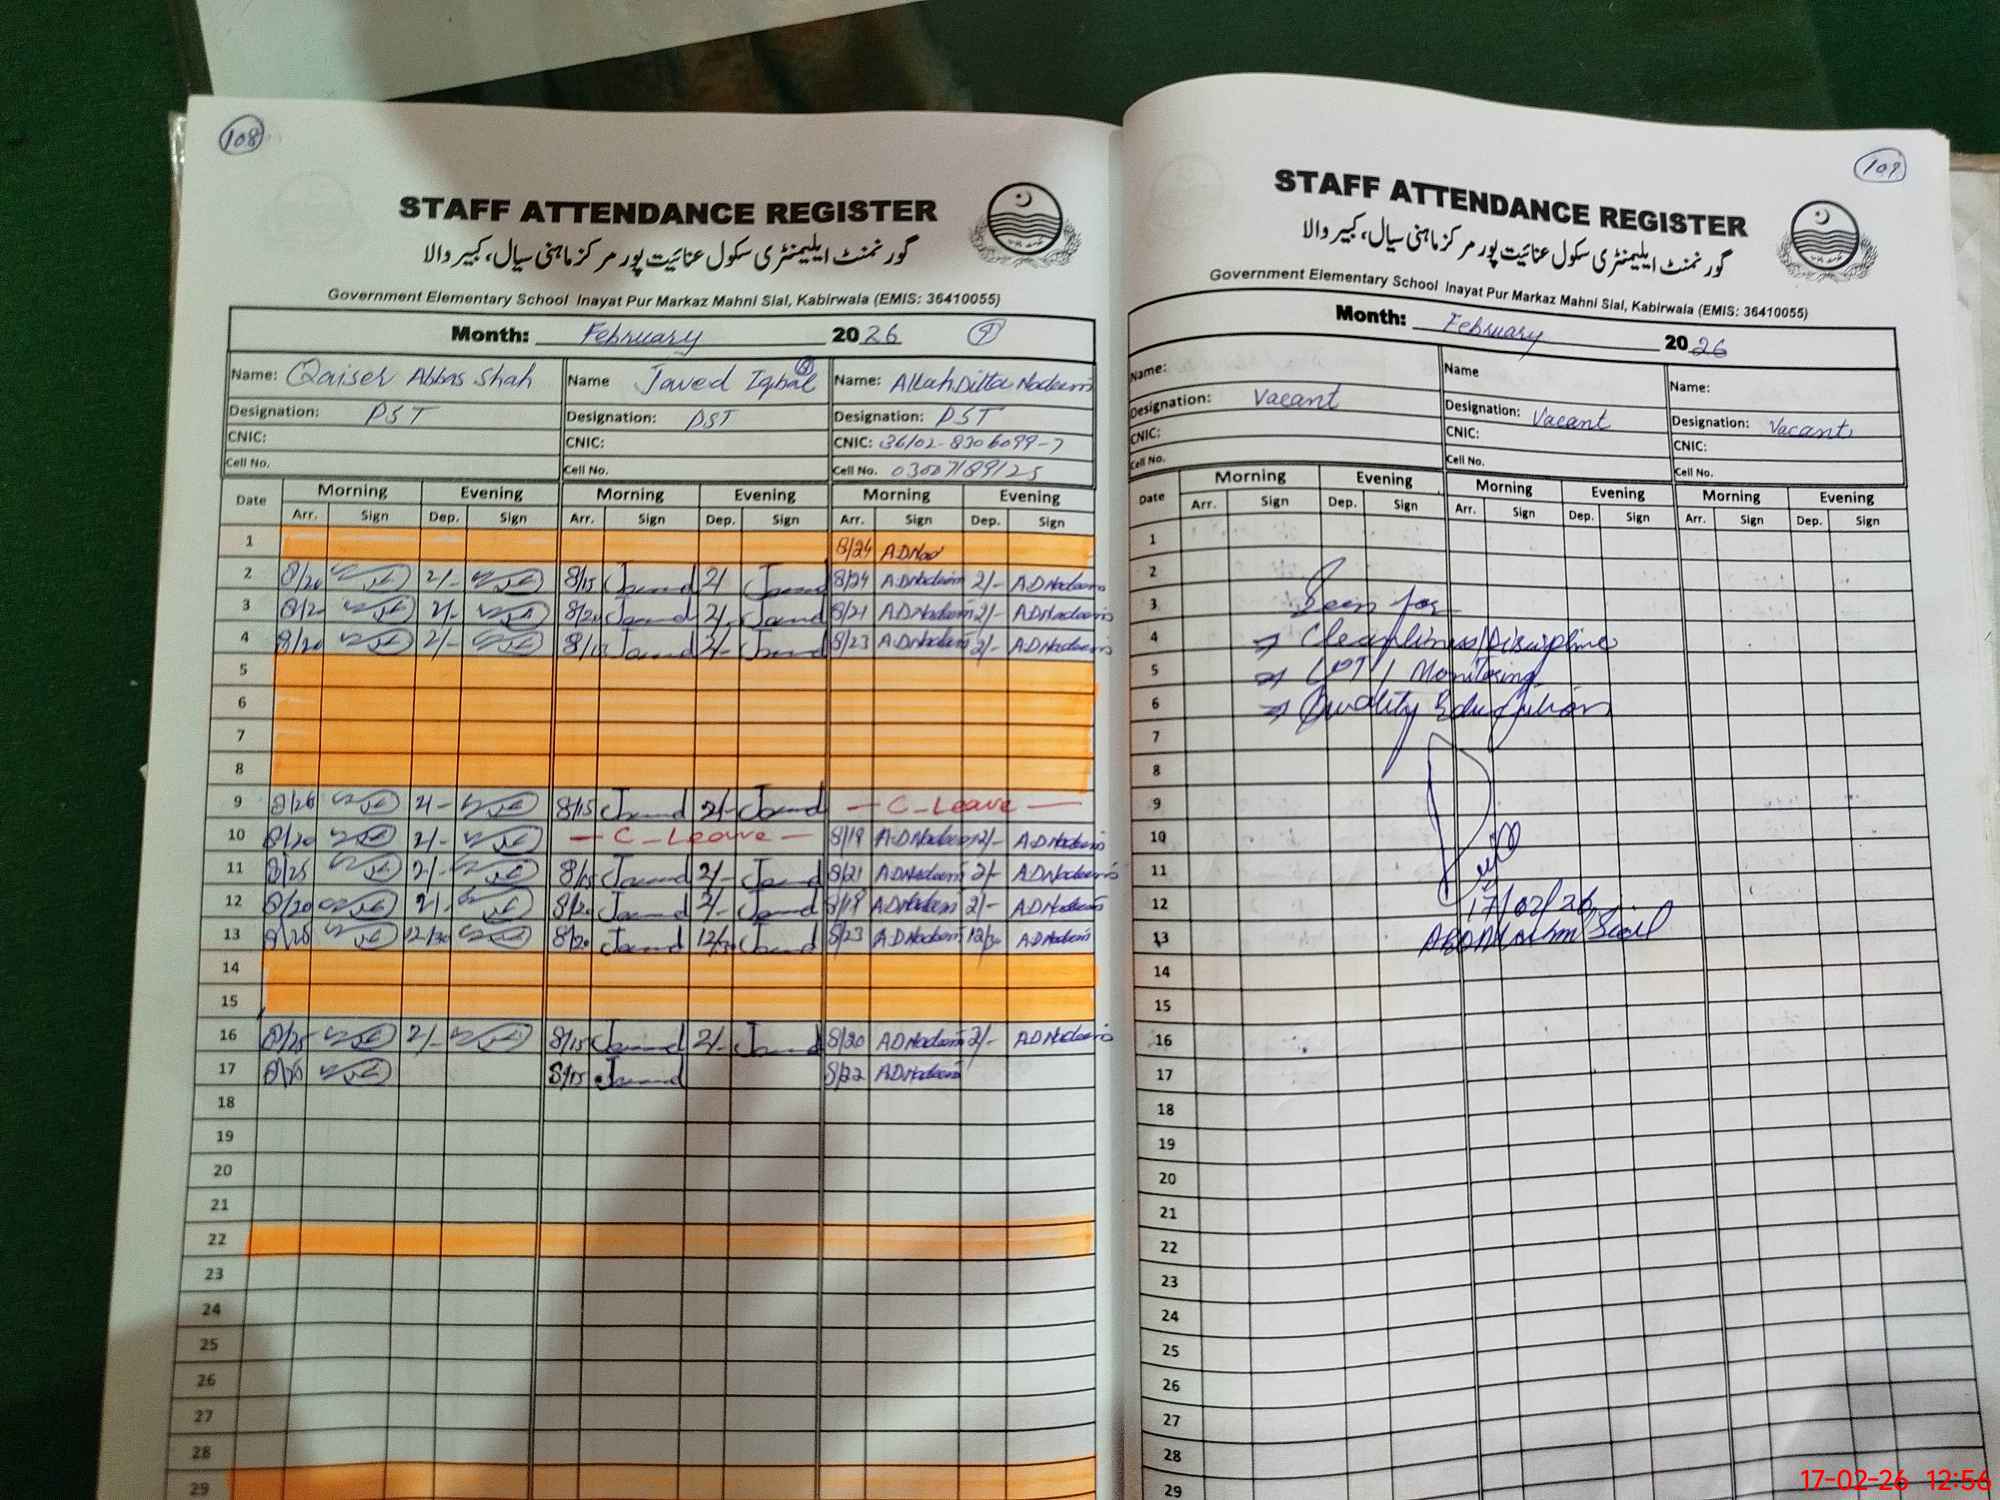 108
STAFF ATTENDANCE REGISTER
گورنمنٹ ایلیمنٹری سکول عنائیت پور مرکز ماہنی سیال، کبیر والا
Government Elementary School Inayat Pur Markaz Mahni Sial, Kabirwala (EMIS: 36410055)
Month: February 2026
Name: Qaiser Abbas Shah Name Javed Iqbal Name: Allah Ditta Nadeem
Designation: PST Designation: PST Designation: PST
CNIC: CNIC: CNIC: 36102-8306099-7
Cell No. Cell No. Cell No. 03007189125
Date Morning Evening Morning Evening Morning Evening
Arr. Sign Dep. Sign Arr. Sign Dep. Sign Arr. Sign Dep. Sign
1 8/24
2 8/20 2/- 8/15 2/ 8/24 ADNadeem 2/- ADNadeem
3 8/20 2/- 8/20 2/- 8/21 ADNadeem 2/- ADNadeem
4 8/20 2/- 2/- 8/23 ADNadeem 2/- ADNadeem
5
6
7
8
9 2/- 8/15 2/- - C-Leave -
10 8/20 2/- - C-Leave - 8/19 ADNadeem 2/- ADNadeem
11 8/25 2/- 8/15 2/- 8/21 ADNadeem 2/- ADNadeem
12 8/20 2/- 8/20 2/- 8/19 ADNadeem 2/- ADNadeem
13 8/25 12/30 8/20 12/30 8/23 ADNadeem 12/30 ADNadeem
14
15
16 8/25 2/- 8/15 2/- 8/20 ADNadeem 2/- ADNadeem
17 8/15 8/22 ADNadeem
18
19
20
21
22
23
24
25
26
27
28
29
109
STAFF ATTENDANCE REGISTER
گورنمنٹ ایلیمنٹری سکول عنائیت پور مرکز ماہنی سیال، کبیر والا
Government Elementary School Inayat Pur Markaz Mahni Sial, Kabirwala (EMIS: 36410055)
Month: February 2026
Name: Name Name:
Designation: Vacant Designation: Vacant Designation: Vacant
CNIC: CNIC: CNIC:
Cell No. Cell No. Cell No.
Date Morning Evening Morning Evening Morning Evening
Arr. Sign Dep. Sign Arr. Sign Dep. Sign Arr. Sign Dep. Sign
1
2
3 Seen for
4 ⇒ Cleanliness/Discipline
5 ⇒ / Monitoring
6 ⇒ Quality Education
7
8
9
10
11
12 17/02/26
13
14
15
16
17
18
19
20
21
22
23
24
25
26
27
28
29
17-02-26 12:56